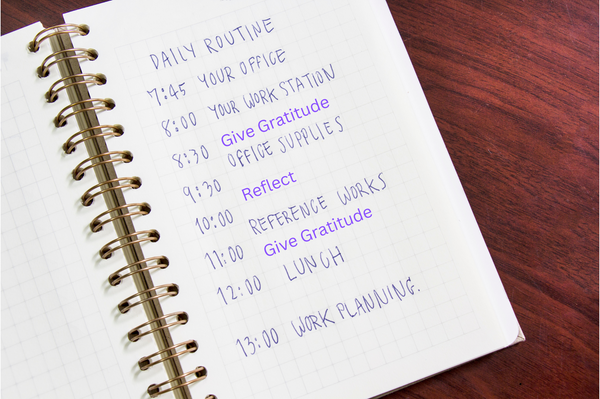 DAILY ROUTINE
7:45 YOUR OFFICE
8:00 YOUR WORK STATION
Give Gratitude
8:30 OFFICE SUPPLIES
9:30 Reflect
10:00 REFERENCE WORKS
11:00 Give Gratitude
12:00 LUNCH
13:00 WORK PLANNING.